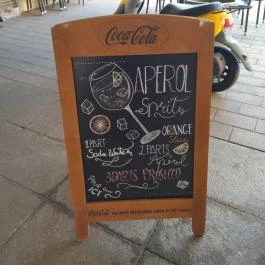 Coca-Cola
APEROL
Spritz
ORANGE
Slice
1 PART
Soda Water
2 PARTS
Aperol
3 PARTS PROSECCO
POUR over
ICE
Coca-Cola THE MOST REFRESHING DRINK IN THE WORLD